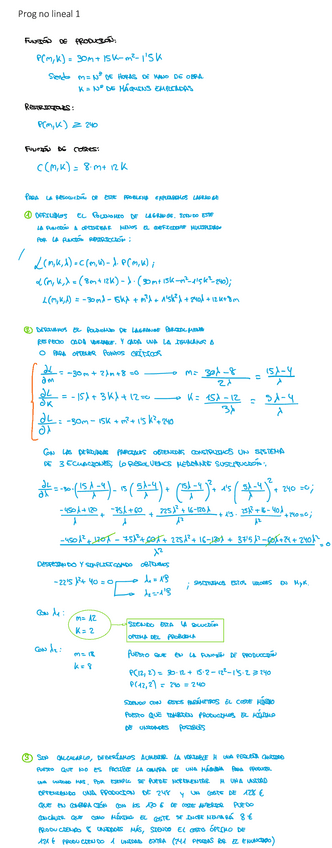 Prog no lineal 1
FUNCIÓN DE PRODUCCIÓN:
P(m,K) = 30m + 15K - m² - 1'5K²
Siendo m = Nº DE HORAS DE MANO DE OBRA
K = Nº DE MÁQUINAS EMPLEADAS
RESTRICCIONES:
P(m,K) ≥ 240
FUNCIÓN DE COSTES:
C(m,K) = 8·m + 12K
PARA LA RESOLUCIÓN DE ESTE PROBLEMA EMPLEAREMOS LAGRANGE
① DEFINIMOS EL POLINOMIO DE LAGRANGE, SIENDO ESTE
LA FUNCIÓN A OPTIMIZAR MENOS EL COEFICIENTE MULTIPLICADO
POR LA FUNCIÓN RESTRICCIÓN:
L(m,K,λ) = C(m,K) - λ·P(m,K);
L(m,K,λ) = (8m+12K) - λ·(30m+15K-m²-1'5K²-240);
L(m,K,λ) = -30mλ - 15Kλ + m²λ + 1'5K²λ + 240λ + 12K + 8m
② DERIVAMOS EL POLINOMIO DE LAGRANGE PARCIALMENTE
RESPECTO CADA VARIABLE. Y CADA UNA LA IGUALAMOS A
0 PARA OBTENER PUNTOS CRÍTICOS
∂L/∂m = -30λ + 2λm + 8 = 0 → m = 30λ-8/2λ = 15λ-4/λ
∂L/∂K = -15λ + 3Kλ + 12 = 0 → K = 15λ-12/3λ = 5λ-4/λ
∂L/∂λ = -30m - 15K + m² + 1'5K² + 240
CON LAS DERIVADAS PARCIALES OBTENIDAS CONSTRUIMOS UN SISTEMA
DE 3 ECUACIONES, LO RESOLVEMOS MEDIANTE SUSTITUCIÓN:
∂L/∂λ = -30·(15λ-4/λ) - 15(5λ-4/λ) + (15λ-4/λ)² + 1'5(5λ-4/λ)² + 240 = 0;
-450λ+120/λ + -75λ+60/λ + 225λ²+16-120λ/λ² + 1'5·25λ²+16-40λ/λ² + 240 = 0;
-450λ²+120λ-75λ²+60λ+225λ²+16-120λ+37'5λ²-60λ+24+240λ²/λ² = 0
DESPEJANDO Y SIMPLIFICANDO OBTENEMOS
-22'5λ² + 40 = 0 → λ₁ = 1'3
→ λ₂ = -1'3 ; SUSTITUIMOS ESTOS VALORES EN M y K.
CON λ₁: m = 12
K = 2
SIENDO ESTA LA SOLUCIÓN
ÓPTIMA DEL PROBLEMA
CON λ₂: m = 18
K = 8
PUESTO QUE EN LA FUNCIÓN DE PRODUCCIÓN
P(12,2) = 30·12 + 15·2 - 12² - 1'5·2² ≥ 240
P(12,2) = 240 = 240
SIENDO CON ESTOS PARÁMETROS EL COSTE MÍNIMO
PUESTO QUE TAMBIÉN PRODUCIMOS EL MÍNIMO
DE UNIDADES POSIBLES
③ SIN CALCULARLO, DEBERÍAMOS AUMENTAR LA VARIABLE M UNA PEQUEÑA CANTIDAD
PUESTO QUE NO ES POSIBLE LA COMPRA DE UNA MÁQUINA PARA PRODUCIR
UNA UNIDAD MAS. POR EJEMPLO SE PUEDE INCREMENTAR M UNA UNIDAD
OBTENIENDO UNA PRODUCCIÓN DE 245 Y UN COSTE DE 128 €
QUE EN COMPARACIÓN CON LOS 120 € DE COSTE ANTERIOR PUEDO
CONCLUIR QUE COMO MÁXIMO EL COSTE SE INCREMENTARÁ 8 €
PRODUCIENDO 5 UNIDADES MÁS, SIENDO EL COSTE ÓPTIMO DE
121 € PRODUCIENDO 1 UNIDAD EXTRA (241